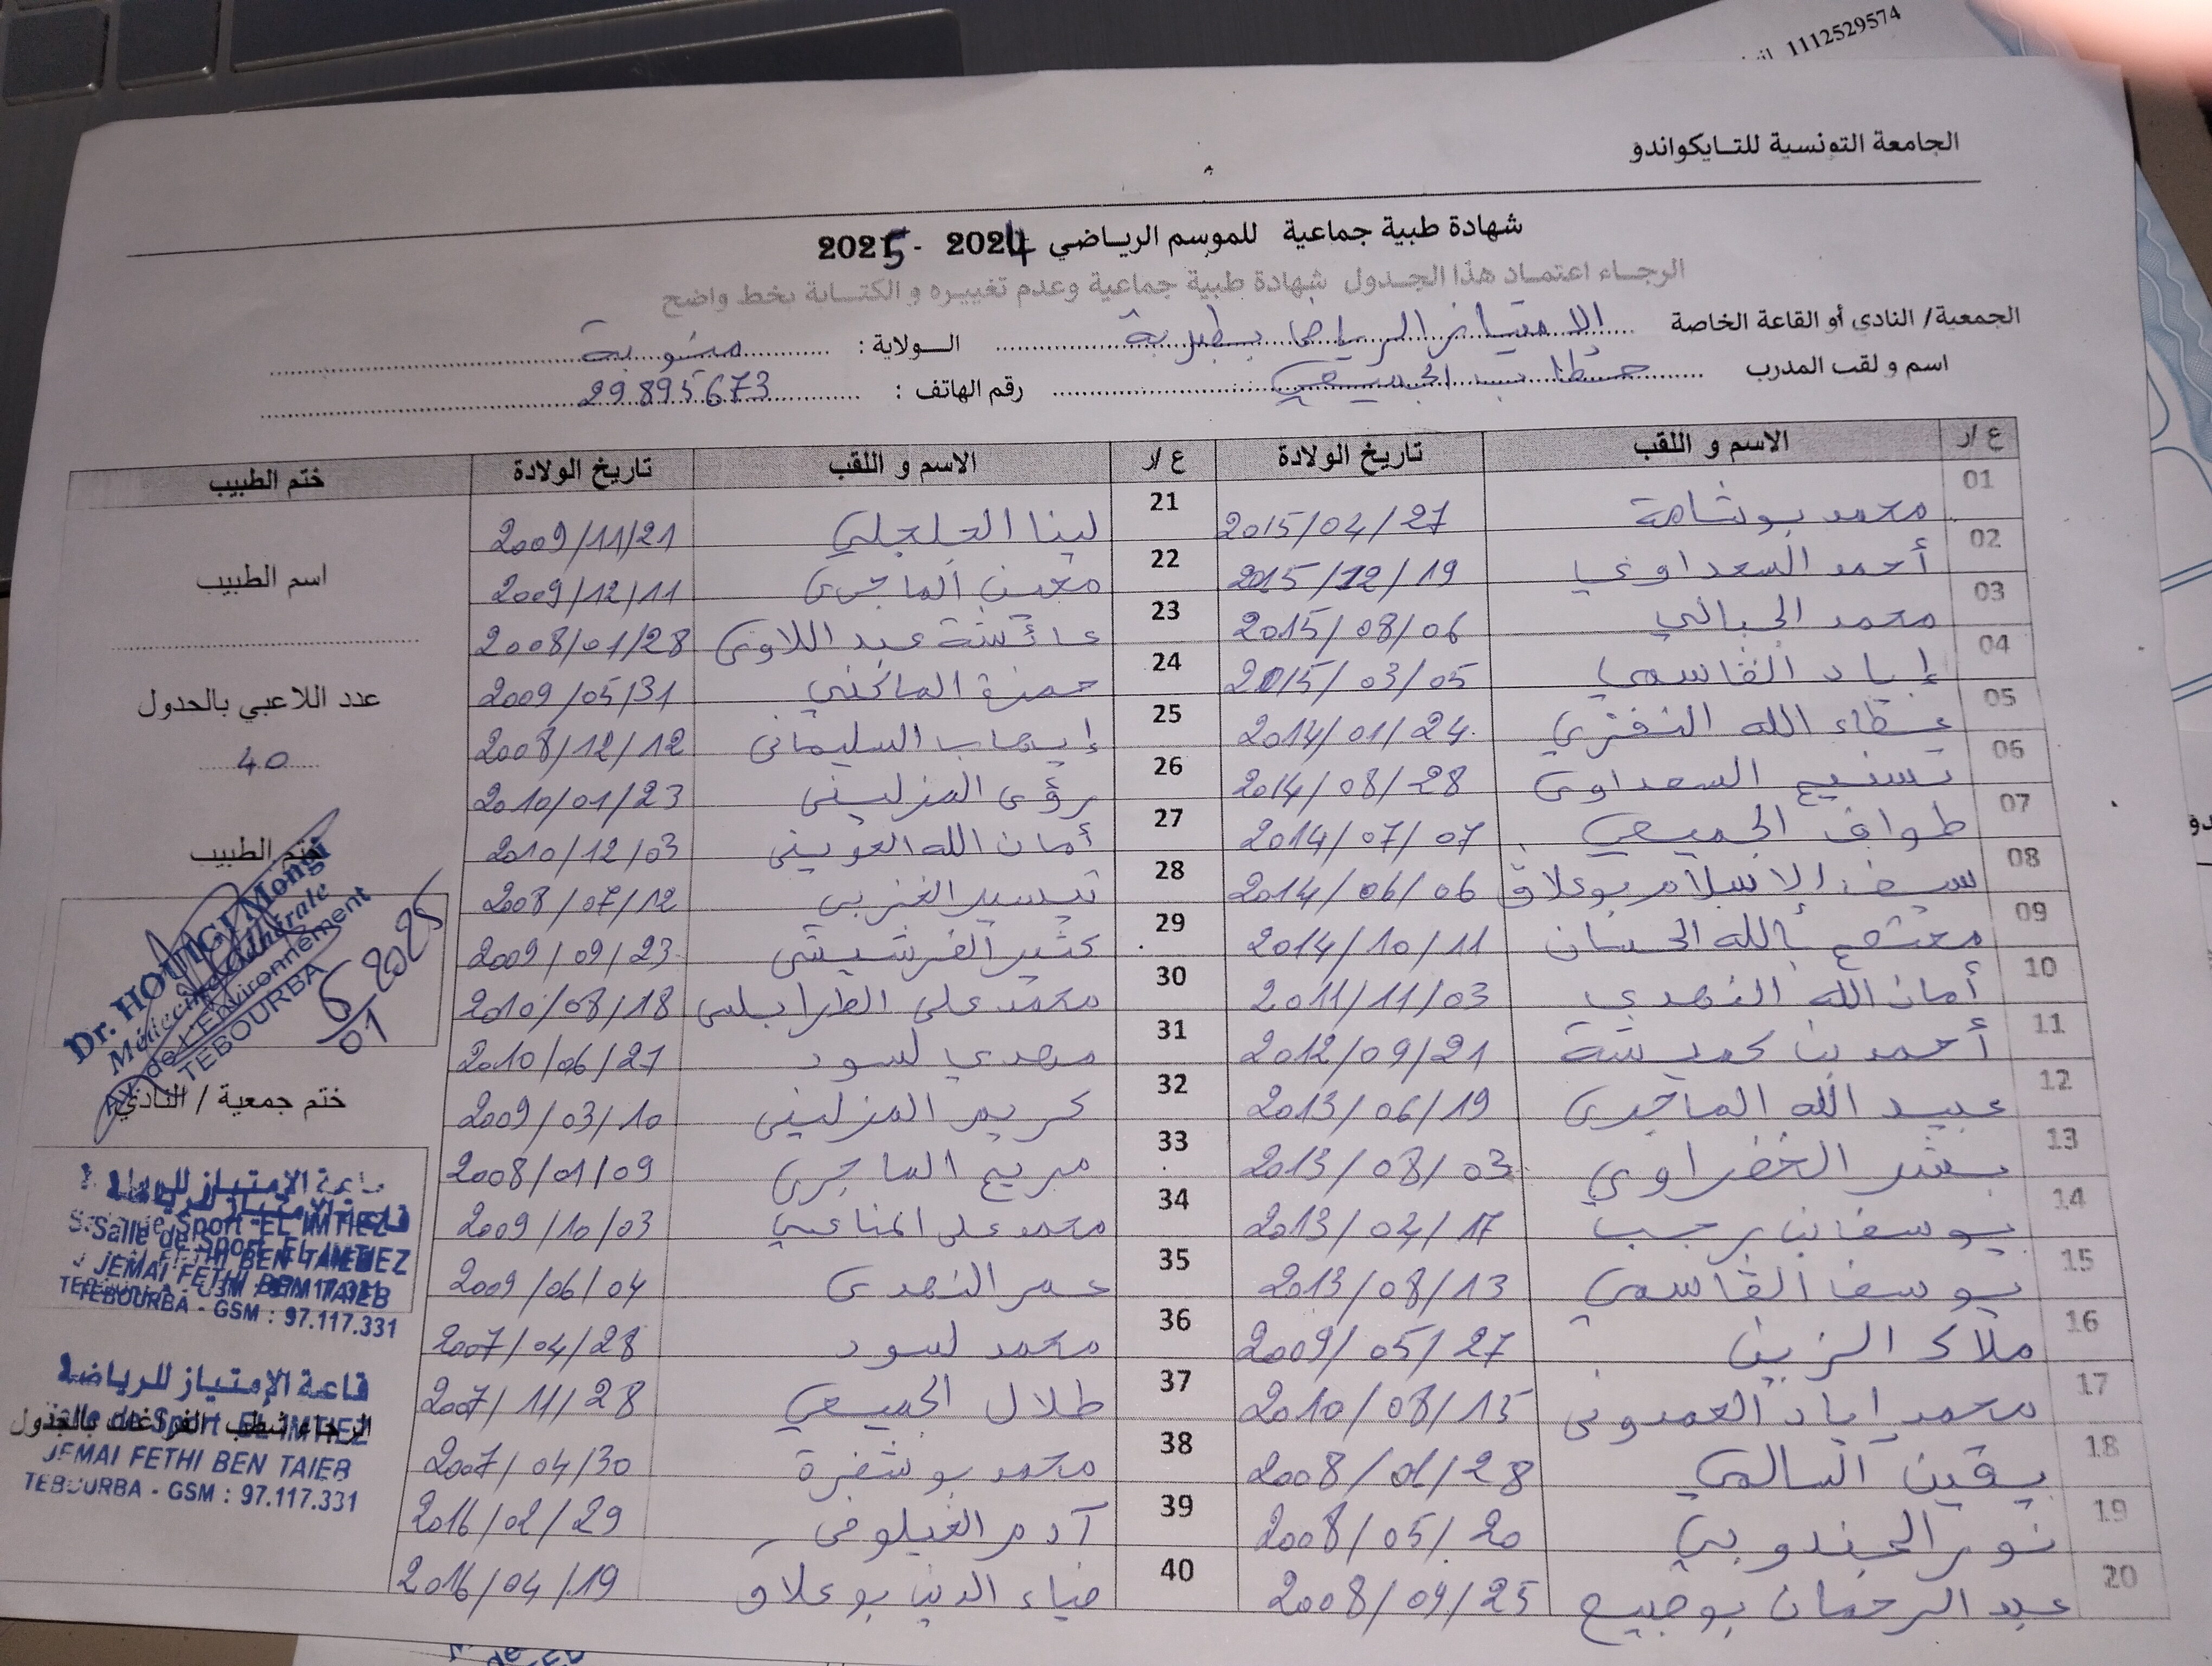 1112529574
الجامعة التونسية للتـايكواندو
شهادة طبية جماعية للموسم الرياضي 2024 - 2025
الرجـاء اعتمـاد هذا الجـدول شهادة طبية جماعية وعدم تغييره و الكتـابة بخط واضح
الجمعية/ النادي أو القاعة الخاصة الامتياز الرياضي بطبربة الـولاية : منوبة
اسم و لقب المدرب خطاب الجميعي رقم الهاتف : 29895673
ع /ر الاسم و اللقب تاريخ الولادة ع /ر الاسم و اللقب تاريخ الولادة ختم الطبيب
01 محمد بوشامة 2015/04/27 21 لينا الجلجلي 2009/11/21
02 أحمد السعداوي 2015/12/19 22 معين الماجري 2009/12/11
03 محمد الجبالي 2015/08/06 23 عائشة عبد اللاوي 2008/01/28
04 إياد القاسمي 2015/03/05 24 حمزة الماكني 2009/05/31
05 عطاء الله النفزي 2014/01/24 25 إيهاب السليماني 2008/12/12
06 تسنيم السعداوي 2014/08/28 26 رؤى المزليني 2010/01/23
07 طواف الجميعي 2014/07/07 27 أمان الله العويني 2010/12/03
08 سيف الاسلام بوعلاق 2014/06/06 28 تيسير الغربي 2008/07/12
09 معتصم بالله الحسان 2014/10/11 29 كثير الفرشيشي 2009/09/23
10 أمان الله النهدي 2011/11/03 30 محمد علي الطرابلسي 2010/08/18
11 أحمد بن كميشة 2012/09/21 31 مهدي لسود 2010/06/21
12 عبيد الله الماجري 2013/06/19 32 كريم المزليني 2009/03/10
13 بشر الخضراوي 2013/08/03 33 مريم الماجري 2008/01/09
14 يوسف بن رجب 2013/02/17 34 محمد علي المناعي 2009/10/03
15 يوسف القاسمي 2013/08/13 35 عمر النهدي 2009/06/04
16 ملاك الزين 2009/05/27 36 محمد لسود 2007/04/28
17 محمد اياد العمدوني 2010/08/15 37 طلال الجميعي 2007/11/28
18 يقين السالمي 2008/01/28 38 محمد بوشفرة 2007/04/30
19 نور الجندوبي 2008/05/20 39 آدم الغيلوفي 2016/02/29
20 عبد الرحمان بوجبيح 2008/09/25 40 ضياء الدين بوعلاق 2016/04/19
اسم الطبيب
عدد اللاعبي بالجدول
40
ختم الطبيب
Dr. HOUIGI Mongi
Médecine Générale
Av. de L'Environnement
TEBOURBA
6/01 2025
ختم جمعية / النادي
قاعة الإمتياز للرياضة
Salle de Sport EL IMTIEZ
JEMAI FETHI BEN TAIEB
TEBOURBA - GSM : 97.117.331
قاعة الإمتياز للرياضة
الرجاء شطب الفراغات بالجدول
Salle de Sport EL IMTIEZ
JEMAI FETHI BEN TAIEB
TEBOURBA - GSM : 97.117.331